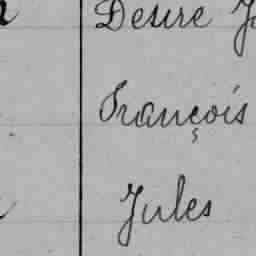 Desire
François
Jules